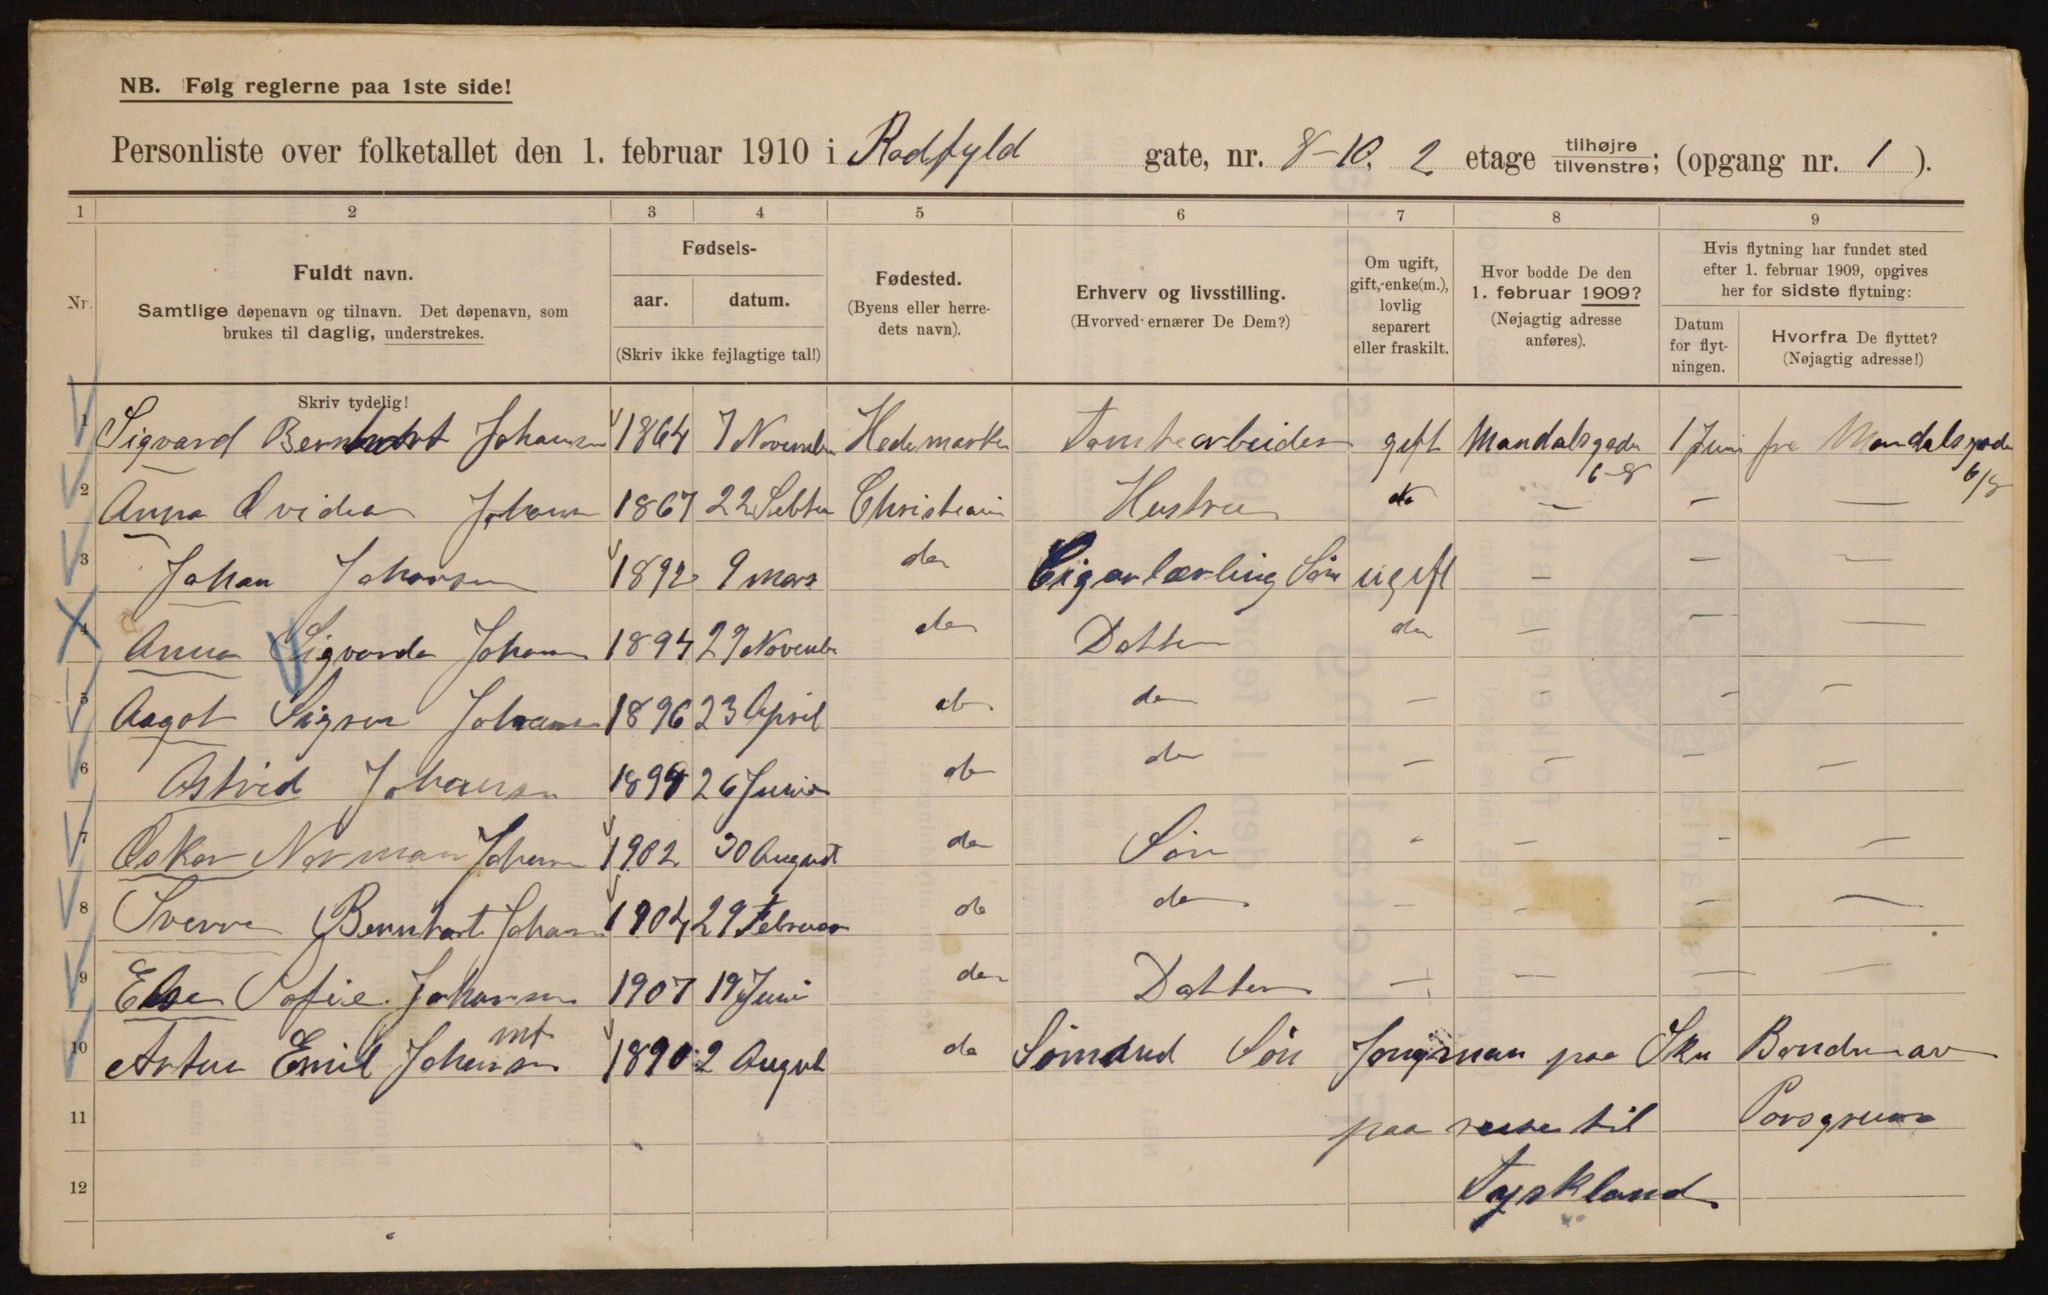 NB. Følg reglerne paa 1ste side!
Personliste over folketallet den 1. februar 1910 i Rodfyld gate, nr. 8-10. 2 etage tilhøjre/tilvenstre; (opgang nr. 1 ).
1 2 3 4 5 6 7 8 9
Nr.
Fuldt navn.
Samtlige døpenavn og tilnavn. Det døpenavn, som
brukes til daglig, understrekes.
Skriv tydelig!
Fødsels-
aar. datum.
(Skriv ikke fejlagtige tal!)
Fødested.
(Byens eller herre-
dets navn).
Erhverv og livsstilling.
(Hvorved ernærer De Dem?)
Om ugift,
gift, enke(m.),
lovlig
separert
eller fraskilt.
Hvor bodde De den
1. februar 1909?
(Nøjagtig adresse
anføres).
Hvis flytning har fundet sted
efter 1. februar 1909, opgives
her for sidste flytning:
Datum
for flyt-
ningen.
Hvorfra De flyttet?
(Nøjagtig adresse!)
1 Sigvard Bernhart Johansen 1864 7 November Hedemarken Tomtearbeider gift Mandalsgade 6-8 1 Juni fra Mandalsgade 6/8
2 Anna Ovidea Johansen 1867 22 Sebtem Christiania Hustru do — — —
3 Johan Johansen 1892 9 mars do Cigarlærling Søn ugift — — —
4 Anna Sigvarda Johansen 1894 27 November do Datter do — — —
5 Aagot Sigrun Johansen 1896 23 April do do — — — —
6 Astrid Johansen 1898 26 Juni do do — — — —
7 Oskar Norman Johansen 1902 30 August do Søn — — — —
8 Sverre Bernhart Johansen 1904 29 Februar do do — — — —
9 Else Sofie Johansen 1907 19 Juni do Datter — — — —
10 Artur Emil Johansen mt 1890 2 August do Sømand Søn Jongman paa Sku Bonden av
11 paa reise til Porsgrunn
12 Tyskland